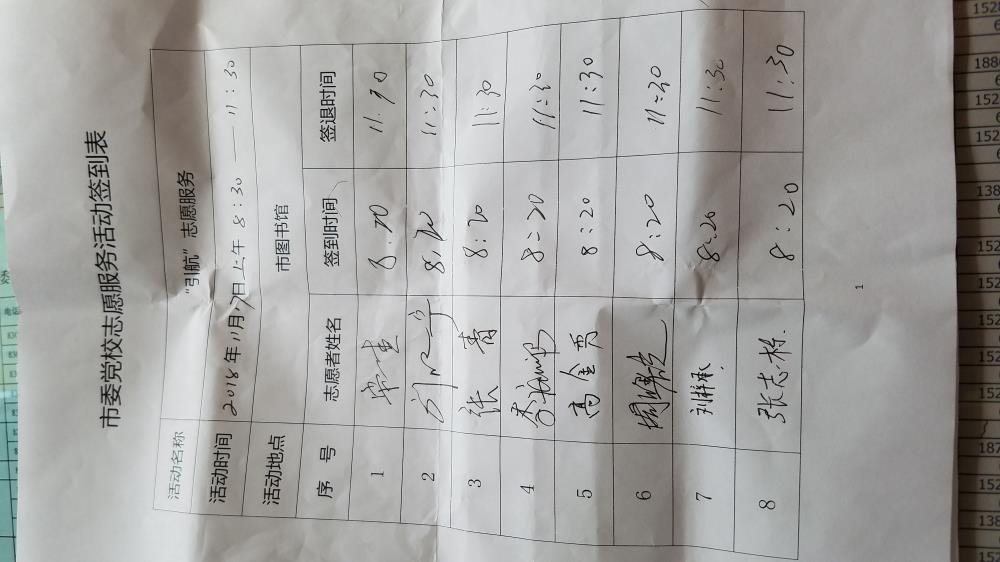 市委党校志愿服务活动签到表
活动名称 “引航”志愿服务
活动时间 2018年11月17日上午 8:30 —— 11:30
活动地点 市图书馆
序 号 志愿者姓名 签到时间 签退时间
1 8.20 11.30
2 8:20 11:30
3 张青 8:20 11:30
4 8:20 11:30
5 高金贾 8:20 11:30
6 8:20 11:30
7 8:20 11:30
8 张志栋 8:20 11:30
1